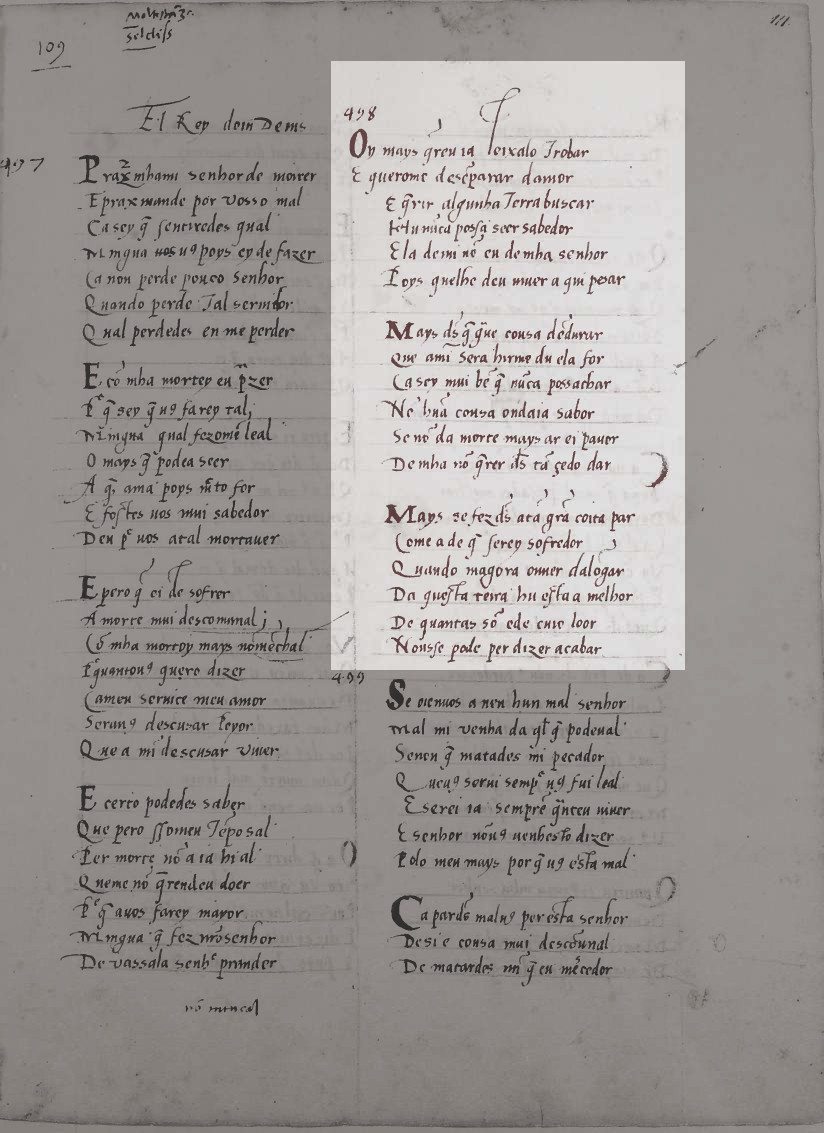 109
111
El Rey dom Denis
497
Prazmhami senhor de moirer
E praxmende por vosso mal
Ca sey q̃ sentiredes qual
Mingua uos uꝯ poys ey de fazer
Ca non perde pouco senhor
Quando perde Tal seruidor
Qual perdedes en me perder
E cõ mha mortey eu p̃zer
P̃ q̃ sey q̃ uꝯ farey tal
Mĩgua qual fezome leal
O mays q̃ podea seer
A q̃ ama poys m̃to for
E fostes uos mui sabedor
Deu p̃ uos atal mortauer
E pero q̃ ei de sofrer
A morte mui descomunal
Cõ mha mortoy mays nõmẽchal
P̃quantouꝯ quero dizer
Cameu seruice meu amor
Seruuꝯ descusar peyor
Que a mi descusar viuer
E certo podedes saber
Que pero ssomeu Tẽpo sal
Per morte nõ a ia hi al
Queme nõ q̃rendeu doer
P̃ q̃ auos farey mayor
Mingua q̃ fez nrõsenhor
De vassala senhr̃ prender
498
Oy mays q̃reu ia leixalo Trobar
E querome desẽparar damor
E q̃rir algunha Terra buscar
nũca possa seer sabedor
Ela demi nẽ eu demha senhor
Poys quelhe deu viuer a qui pesar
Mays ds̃ q̃ g̃ue cousa dẽdurar
Que amĩ sera hirme du ela for
Ca sey mui bẽ q̃ nũca possachar
Nẽ hũa cousa ondaia sabor
Se nõ da morte mays ar ei pauor
De mha nõ q̃rer ds̃ tã çedo dar
Mays se fez ds̃ atã grã coita par
Come a de q̃ serey sofredor
Quando magora ouuer dalõgar
Da questa terra hu esta a melhor
De quantas sõ e de cuio loor
Nonsse pode per dizer acabar
499
Se oienuos a nen hun mal senhor
Mal mi venha da ql̃ q̃ podeual
Senon q̃ matades mi pecador
Queuꝯ serui semp̃ uꝯ fui leal
E serei ia sempre q̃nteu viuer
E senhor nõuꝯ uenhesto dizer
Polo meu mays por q̃ uꝯ esta mal
Ca par ds̃ maluꝯ per esta senhor
Desi e cousa mui descõunal
De matardes mi q̃ eu mẽcedor